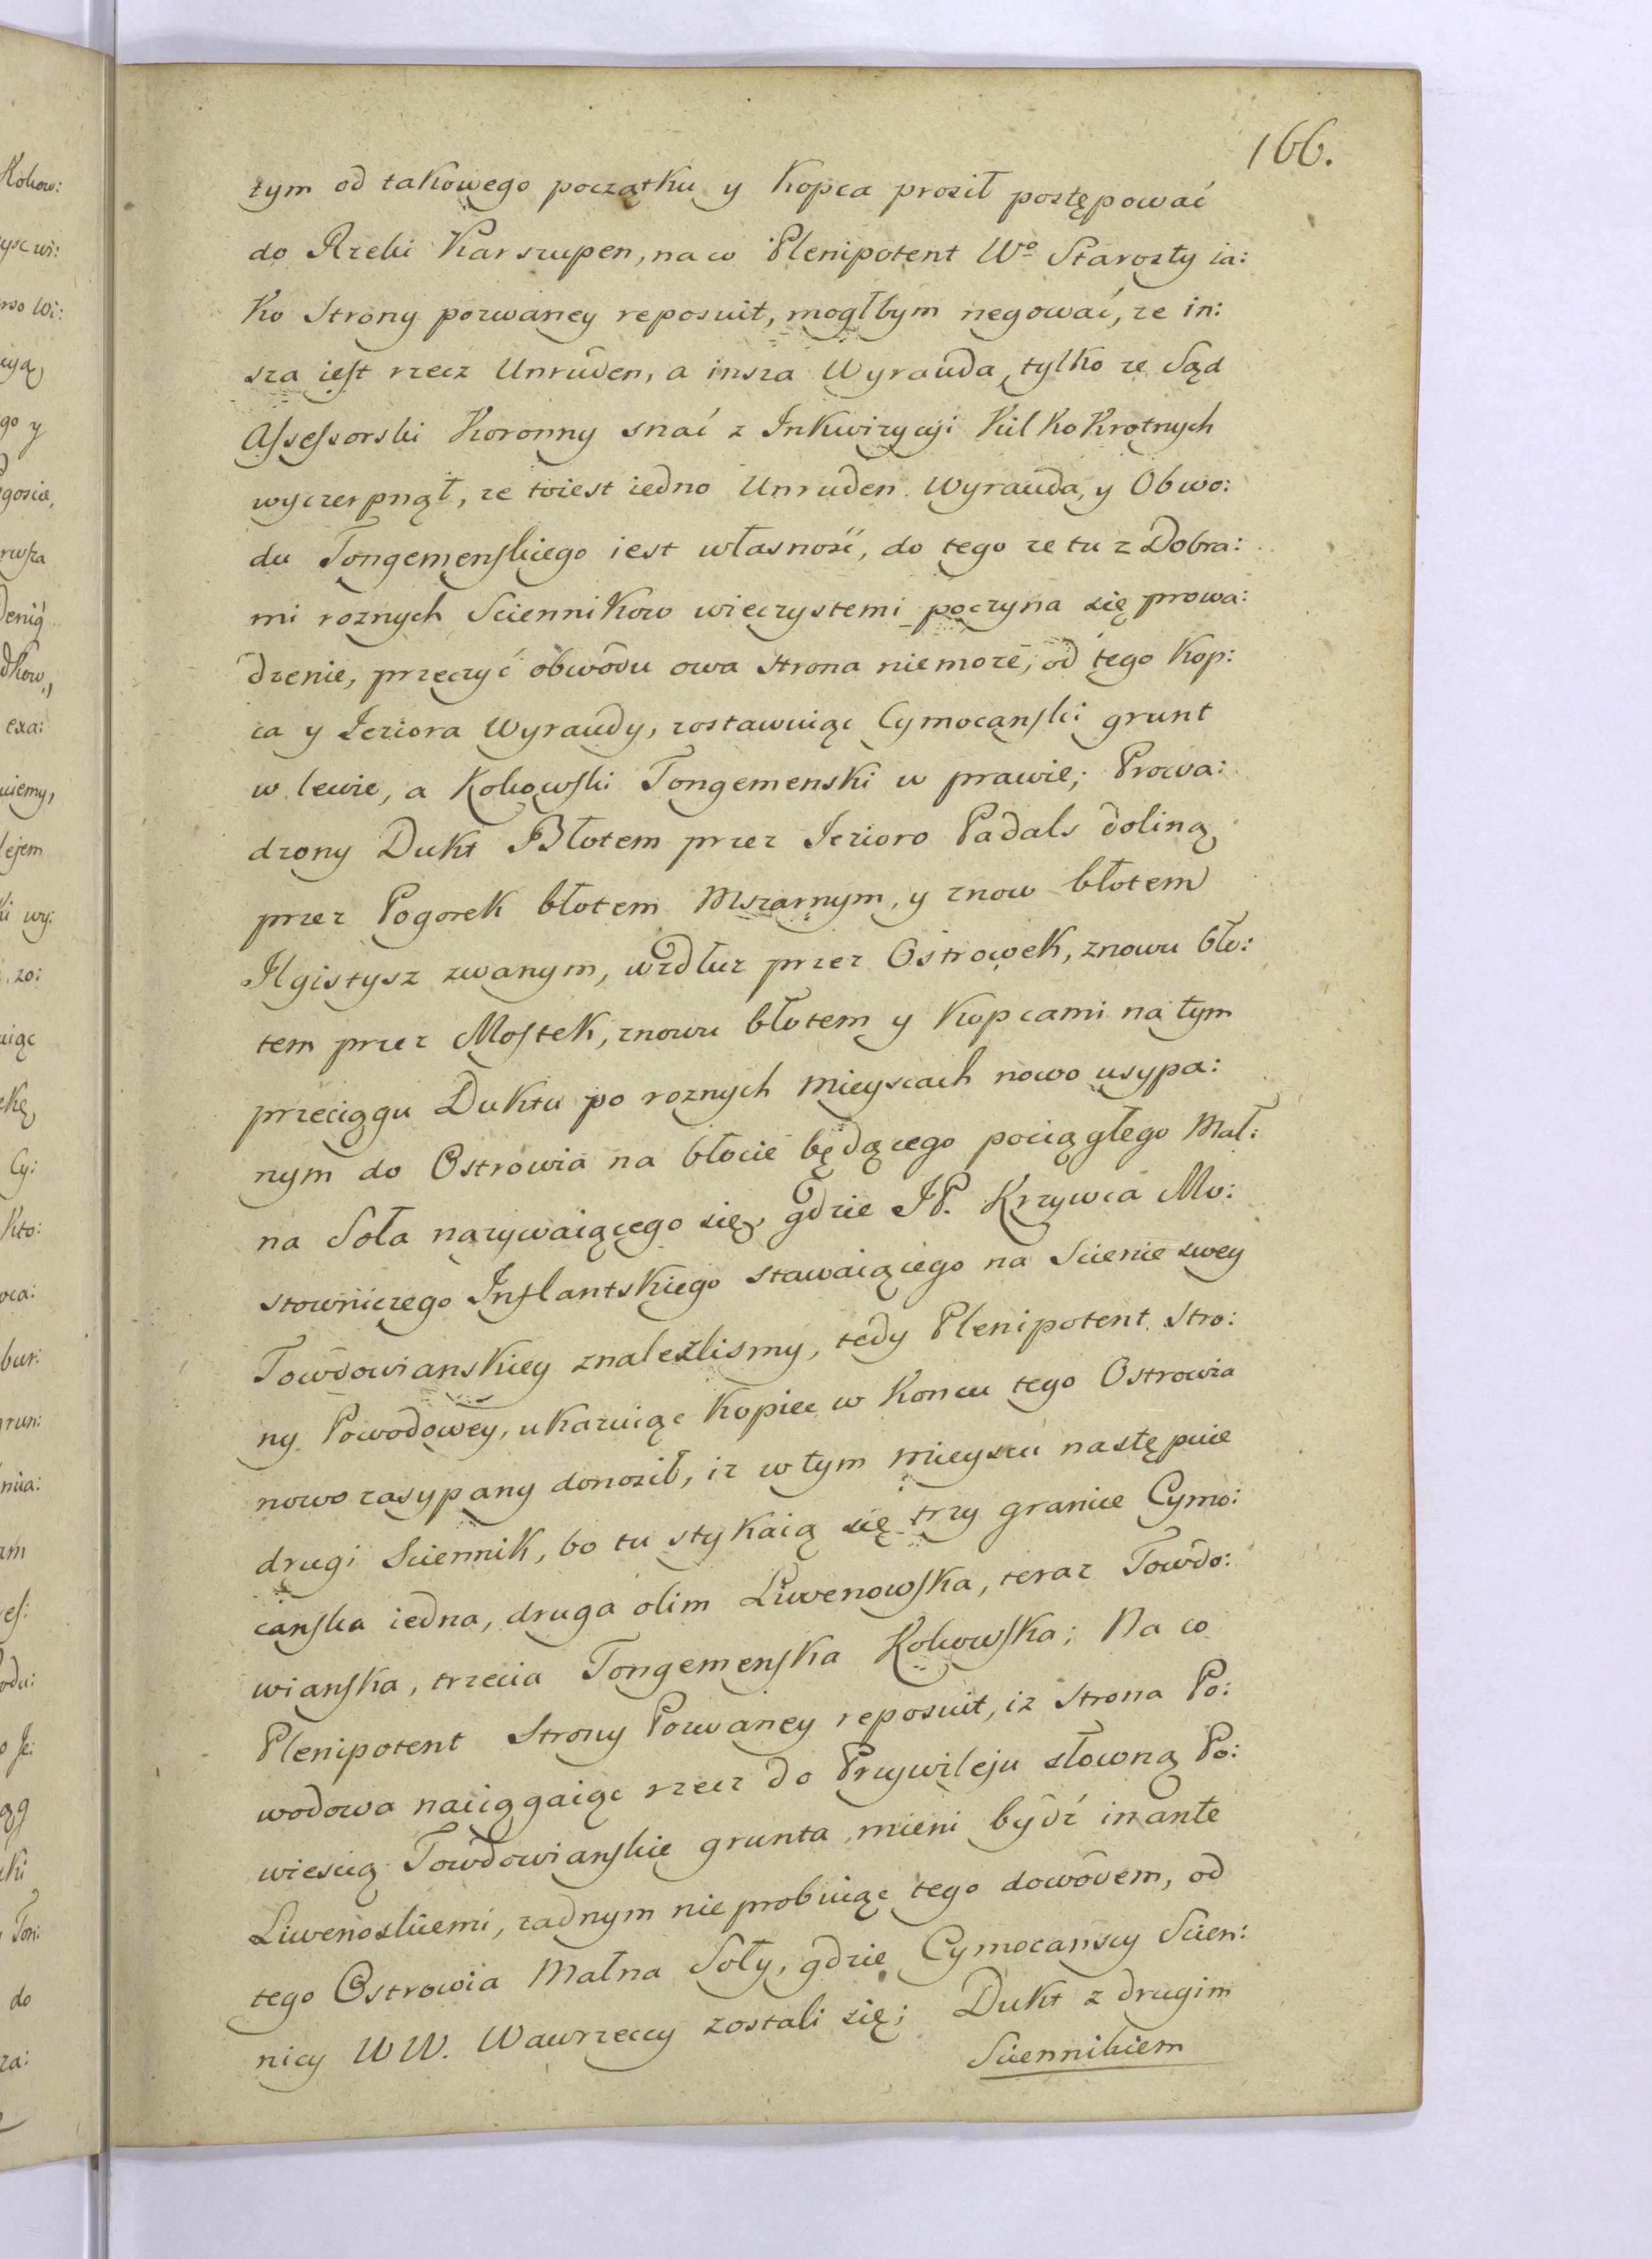 166.
tym od takowego początku y Kopca prosił postępować
do Rzeki Karszupen, na co Plenipotent Wo Starosty ia:
ko Strony pozwaney reposuit, mogłbym negować, ze in:
sza iest rzecz Unruden, a insza Wyrauda, tylko ze Sąd
Assessorski Koronny snać z Inkwizycyi Kilkokrotnych
wyczerpnął, ze toiest iedno Unruden Wyrauda, y Obwo:
du Tongemenskiego iest własność, do tego ze tu z Dobra:
mi roznych Sciennikow wieczystemi poczyna się prowa:
dzenie, przeczyć obwodu owa strona niemoze, od tego Kop:
ca y Jeziora Wyraudy, zostawuiąc Cymocanski grunt
w lewie, a Kokowski Tongemenski w prawie; Prowa:
dzony Dukt Błotem przez Jezioro Padals doliną
przez Pogorek błotem Mszarnym, y znow błotem
Ilgistysz zwanym, wzdłuz przez Ostrowek, znowu bło:
tem przez Mostek, znowu błotem y Kopcami na tym
przeciągu Duktu po roznych mieyscach nowo usypa:
nym do Ostrowia na błocie będącego pociągłego Mał:
na Soła nazywaiącego się, gdzie JP. Krzywca Mo:
stowniczego Inflantskiego stawaiącego na Scienie swey
Towdowianskiey znalezlismy, tedy Plenipotent Stro:
ny Powodowey, ukazuiąc Kopiec w Koncu tego Ostrowia
nowo zasypany donosił, iz w tym mieyscu następuie
drugi Sciennik, bo tu stykaią się trzy granice Cymo:
canska iedna, druga olim Liwenowska, teraz Towdo:
wianska, trzecia Tongemenska Kokowska; Na co
Plenipotent Strony Pozwaney reposuit, iz Strona Po:
wodowa naciągaiąc rzecz do Przywileju słowną Po:
wiescią Towdowianskie grunta mieni bydź in ante
Liwenoskiemi, zadnym nie probuiąc tego dowodem, od
tego Ostrowia Małna Soły, gdzie Cymocanscy Scien:
nicy WW. Wawrzeccy zostali się; Dukt z drugim
Sciennikiem